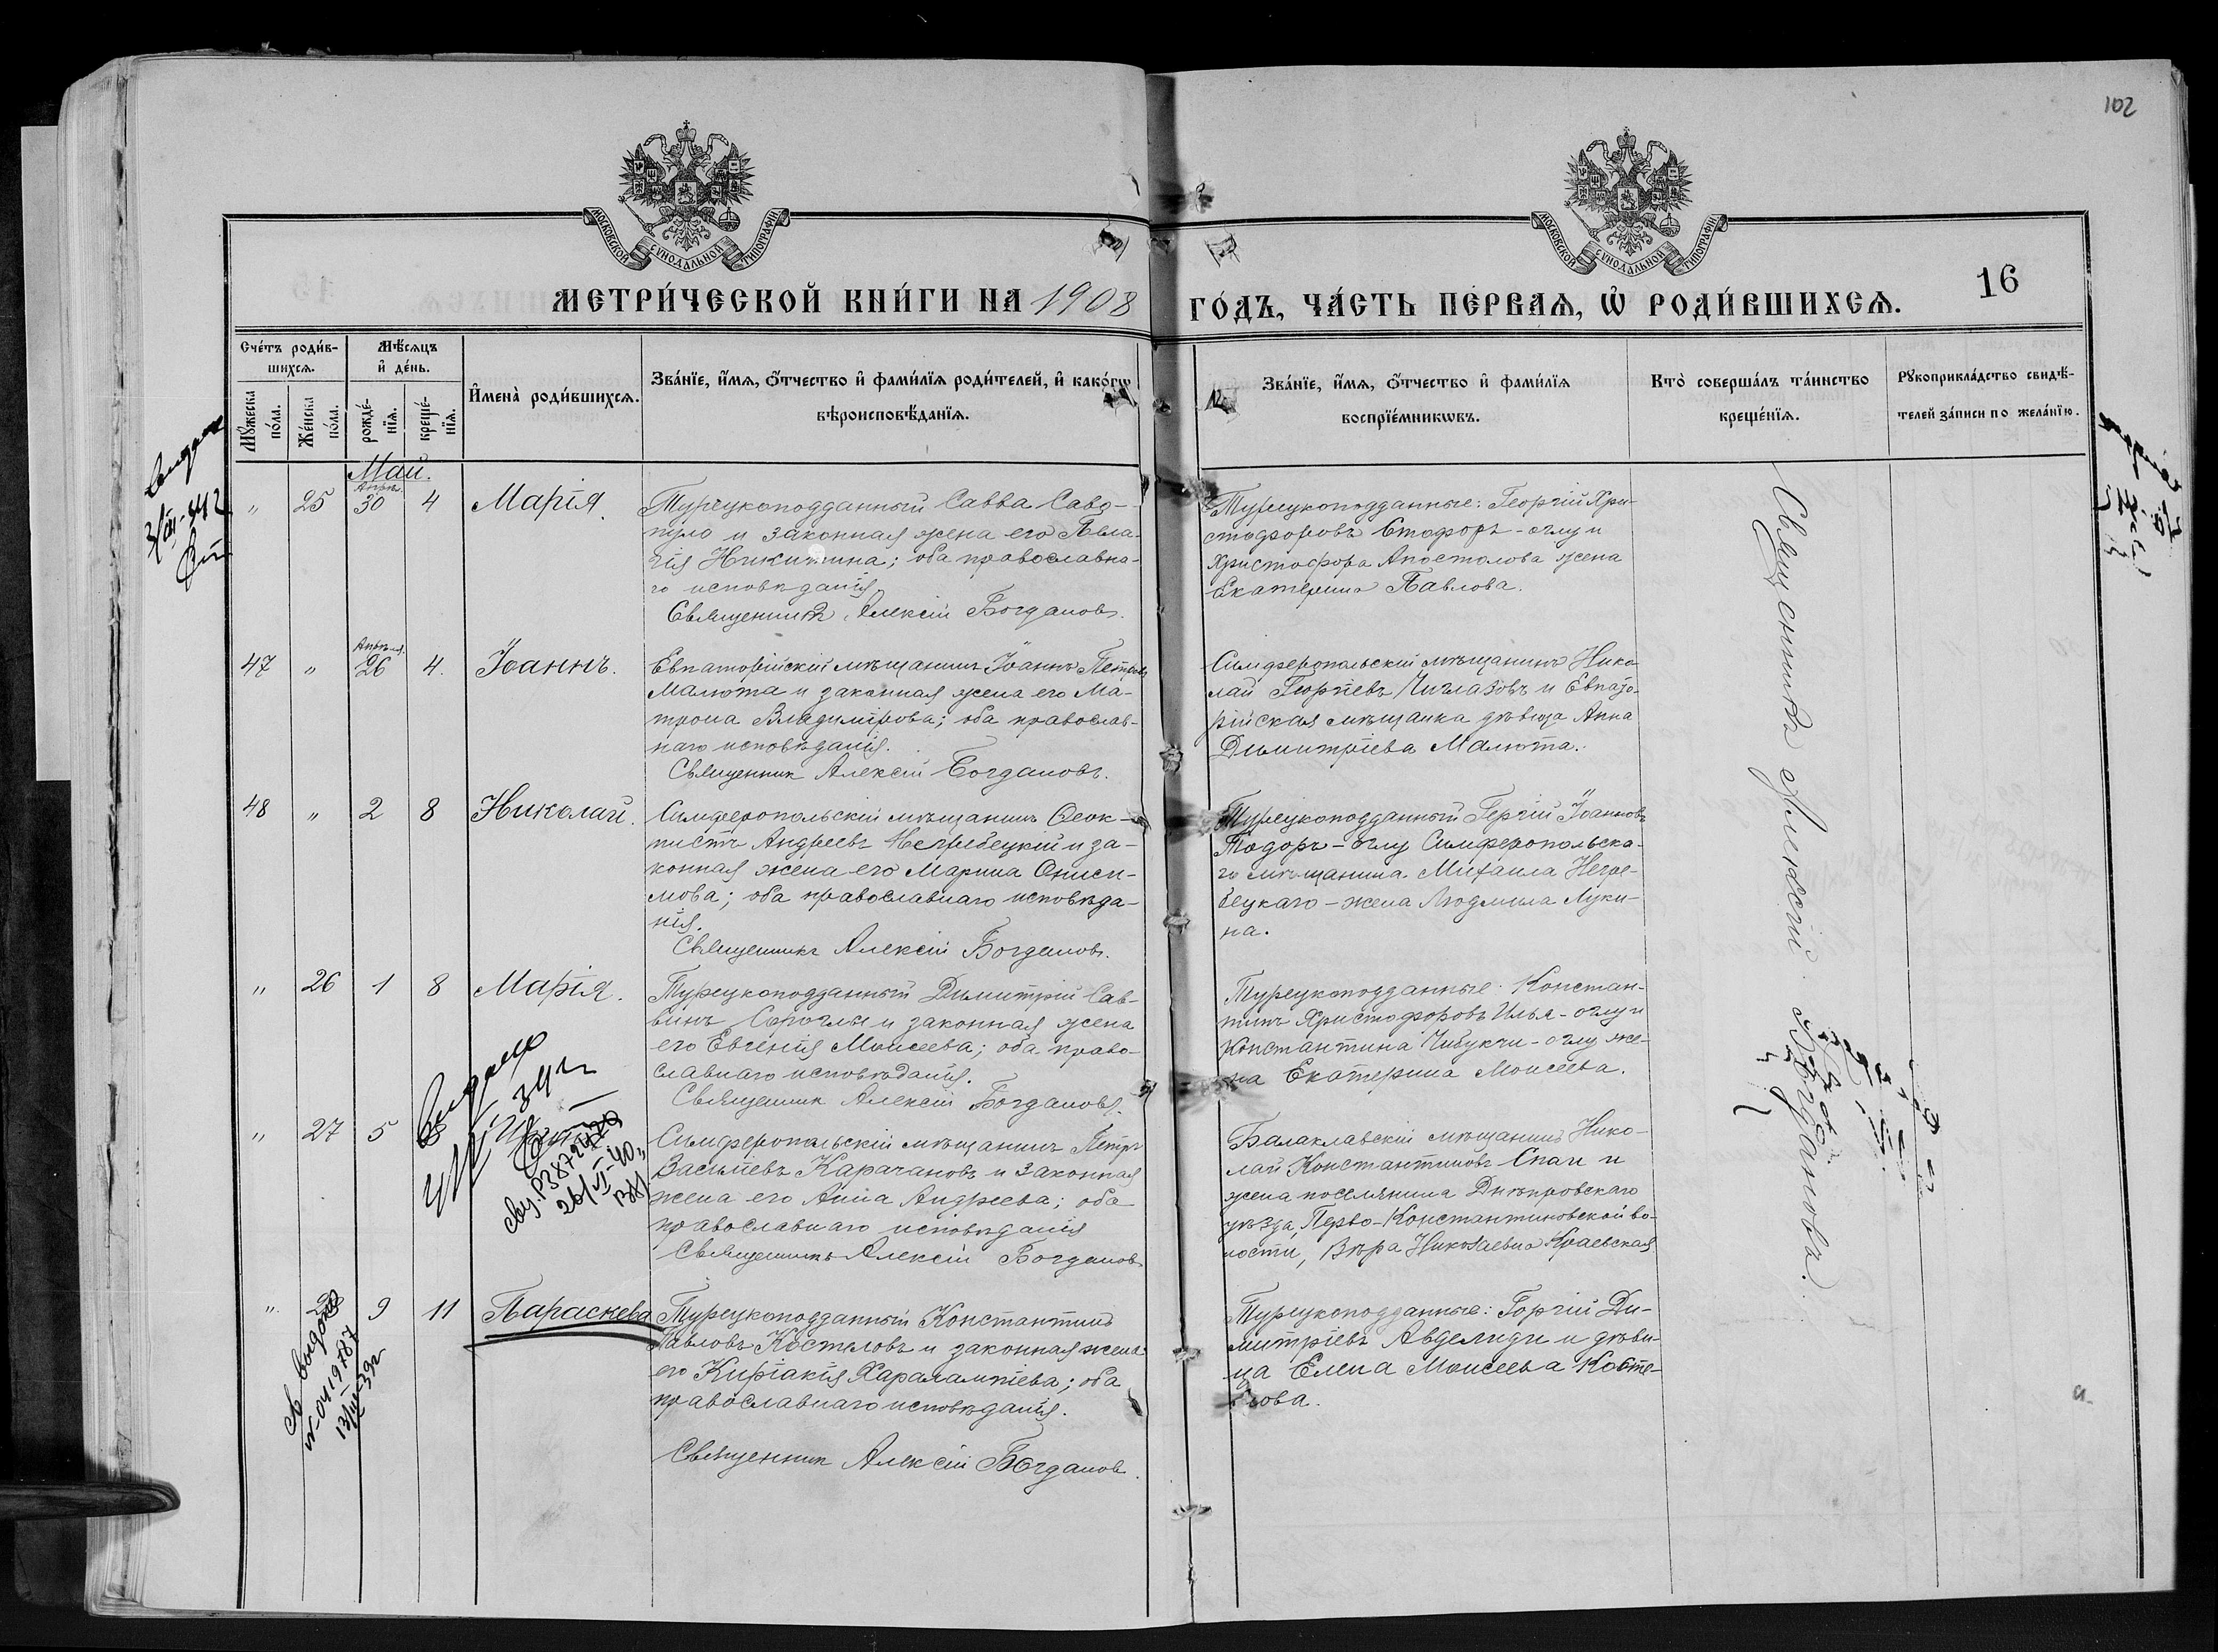 102
МОСКОВСКОЙ СУНОДАЛЬНОЙ ТИПОГРАФІИ
МОСКОВСКОЙ СУНОДАЛЬНОЙ ТИПОГРАФІИ
МЕТРИ́ЧЕСКОЙ КНИ́ГИ НА 1908
ГО́ДЪ, ЧА́СТЬ ПЕ́РВАЯ, Ѿ РОДИ́ВШИХСЯ.
16
Сче́тъ роди́в-
шихся.
Мѣ́сяцъ
и҆ де́нь.
Му́жеска
по́ла.
Же́нска
по́ла.
рожде́-
нїя.
креще́-
нїя.
И҆мена̀ роди́вшихся.
Зва́нїе, и҆́мя, ѻ҆́тчество и҆ фами́лїя роди́телей, и҆ како́гѡ
вѣроисповѣ́данїя.
Зва́нїе, и҆́мя, ѻ҆́тчество и҆ фами́лїя
воспрїе́мникѡвъ.
Кто̀ соверша́лъ та́инство
креще́нїя.
Рꙋкоприкла́дство свидѣ́-
телей за́писи по жела́нїю.
Май.
" 25 30 4 Марія.
Турецкоподданный Савва Саво-
пуло и законная жена его Пела-
гія Никитина; оба православна-
го исповѣданія.
Священникъ Алексій Богдановъ.
Турецкоподданные: Георгій Хри-
стофоровъ Стофоръ-оглу и
Христофора Апостолова жена
Екатерина Павлова.
47 " 26 4. Іоаннъ.
Евпаторійскій мѣщанинъ Іоаннъ Петровъ
Малюта и законная жена его Ма-
трона Владимірова; оба православ-
наго исповѣданія.
Священник Алексій Богдановъ.
Симферопольскій мѣщанинъ Нико-
лай Георгіевъ и Евпато-
рійская мѣщанка дѣвица Анна
Димитріева Малюта.
48 " 2 8 Николай.
Симферопольскій мѣщанинъ Ѳеок-
тистъ Андреевъ Негребецкій и за-
конная жена его Марина Ониси-
мова; оба православнаго исповѣда-
нія.
Священникъ Алексій Богдановъ.
Турецкоподданный Гергій Іоанновъ
Тодоръ-оглу Симферопольска-
го мѣщанина Михаила Негре-
бецкаго - жена Людмила Луки-
на.
" 26 1 8 Марія.
Турецкоподданный Димитрій Сав-
винъ и законная жена
его Евгенія Моисеева; оба право-
славнаго исповѣданія.
Священник Алексій Богдановъ.
Турецкоподданные: Констан-
тинъ Христофоровъ Илья-оглу и
Константина Чибукчи-оглу же-
на Екатерина Моисеева.
" 27 5
Симферопольскій мѣщанинъ Петръ
Васильевъ Карачановъ и законная
жена его Анна Андреева; оба
православнаго исповѣданія
Священникъ Алексій Богдановъ
Балаклавскій мѣщанинъ Нико-
лай Константиновъ Спаи и
жена поселянина Днѣпровскаго
уѣзда, Перво-Константиновской во-
лости, Вѣра Николаевна Краевская
". 9 11 Параскева
Турецкоподданный Константинъ
Павловъ Костеловъ и законная жена
его Киріакія Харалампіева; оба
православнаго исповѣданія.
Священник Алексій Богданов.
Турецкоподданные: Горгій Ди-
митріевъ Авделиди и дѣви-
ца Елена Моисеева Косте-
лова.
Священникъ Алексій Богдановъ.